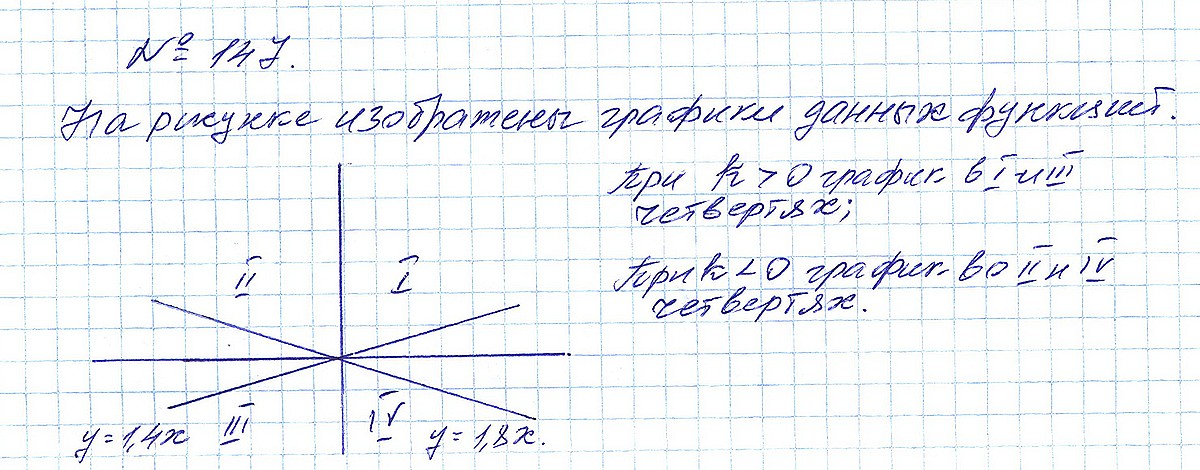 № 147.
На рисунке изображены графики данных функций.
При k > 0 график в I и III
четвертях;
При k < 0 график во II и IV
четвертях.
II
I
III
IV
y = 1,4x
y = 1,8x.